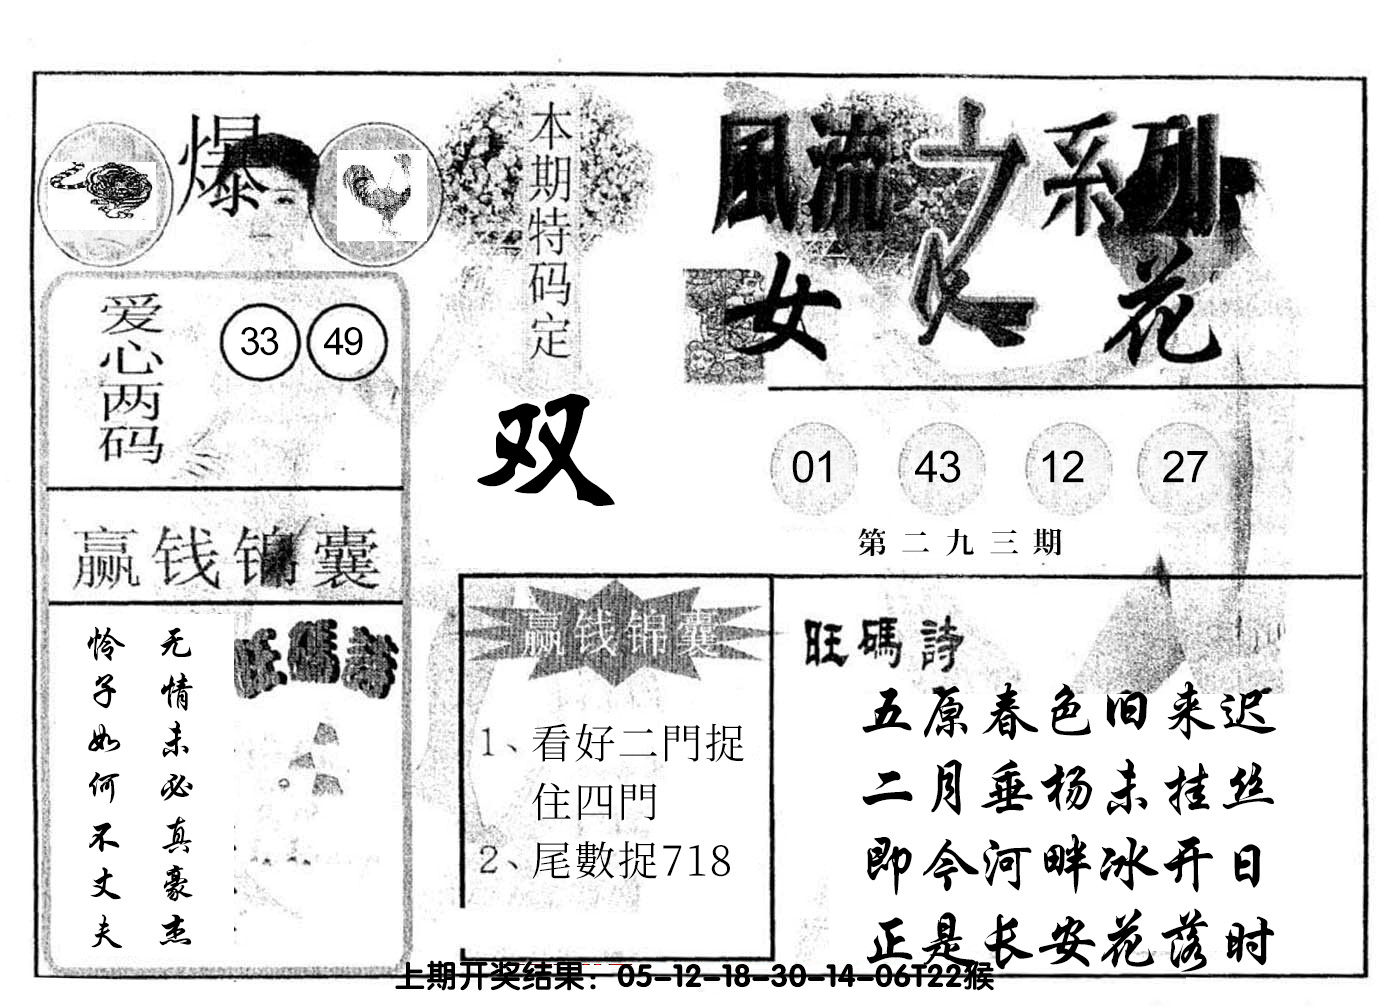 爆
本期特码定
双
風流之系列
女人花
爱心两码
33 49
01 43 12 27
第二九三期
赢钱锦囊
无情未必真豪杰
怜子如何不丈夫
旺碼詩
赢钱锦囊
1、看好二門捉
住四門
2、尾數捉718
旺碼詩
五原春色旧来迟
二月垂杨未挂丝
即今河畔冰开日
正是长安花落时
上期开奖结果：05-12-18-30-14-06T22猴